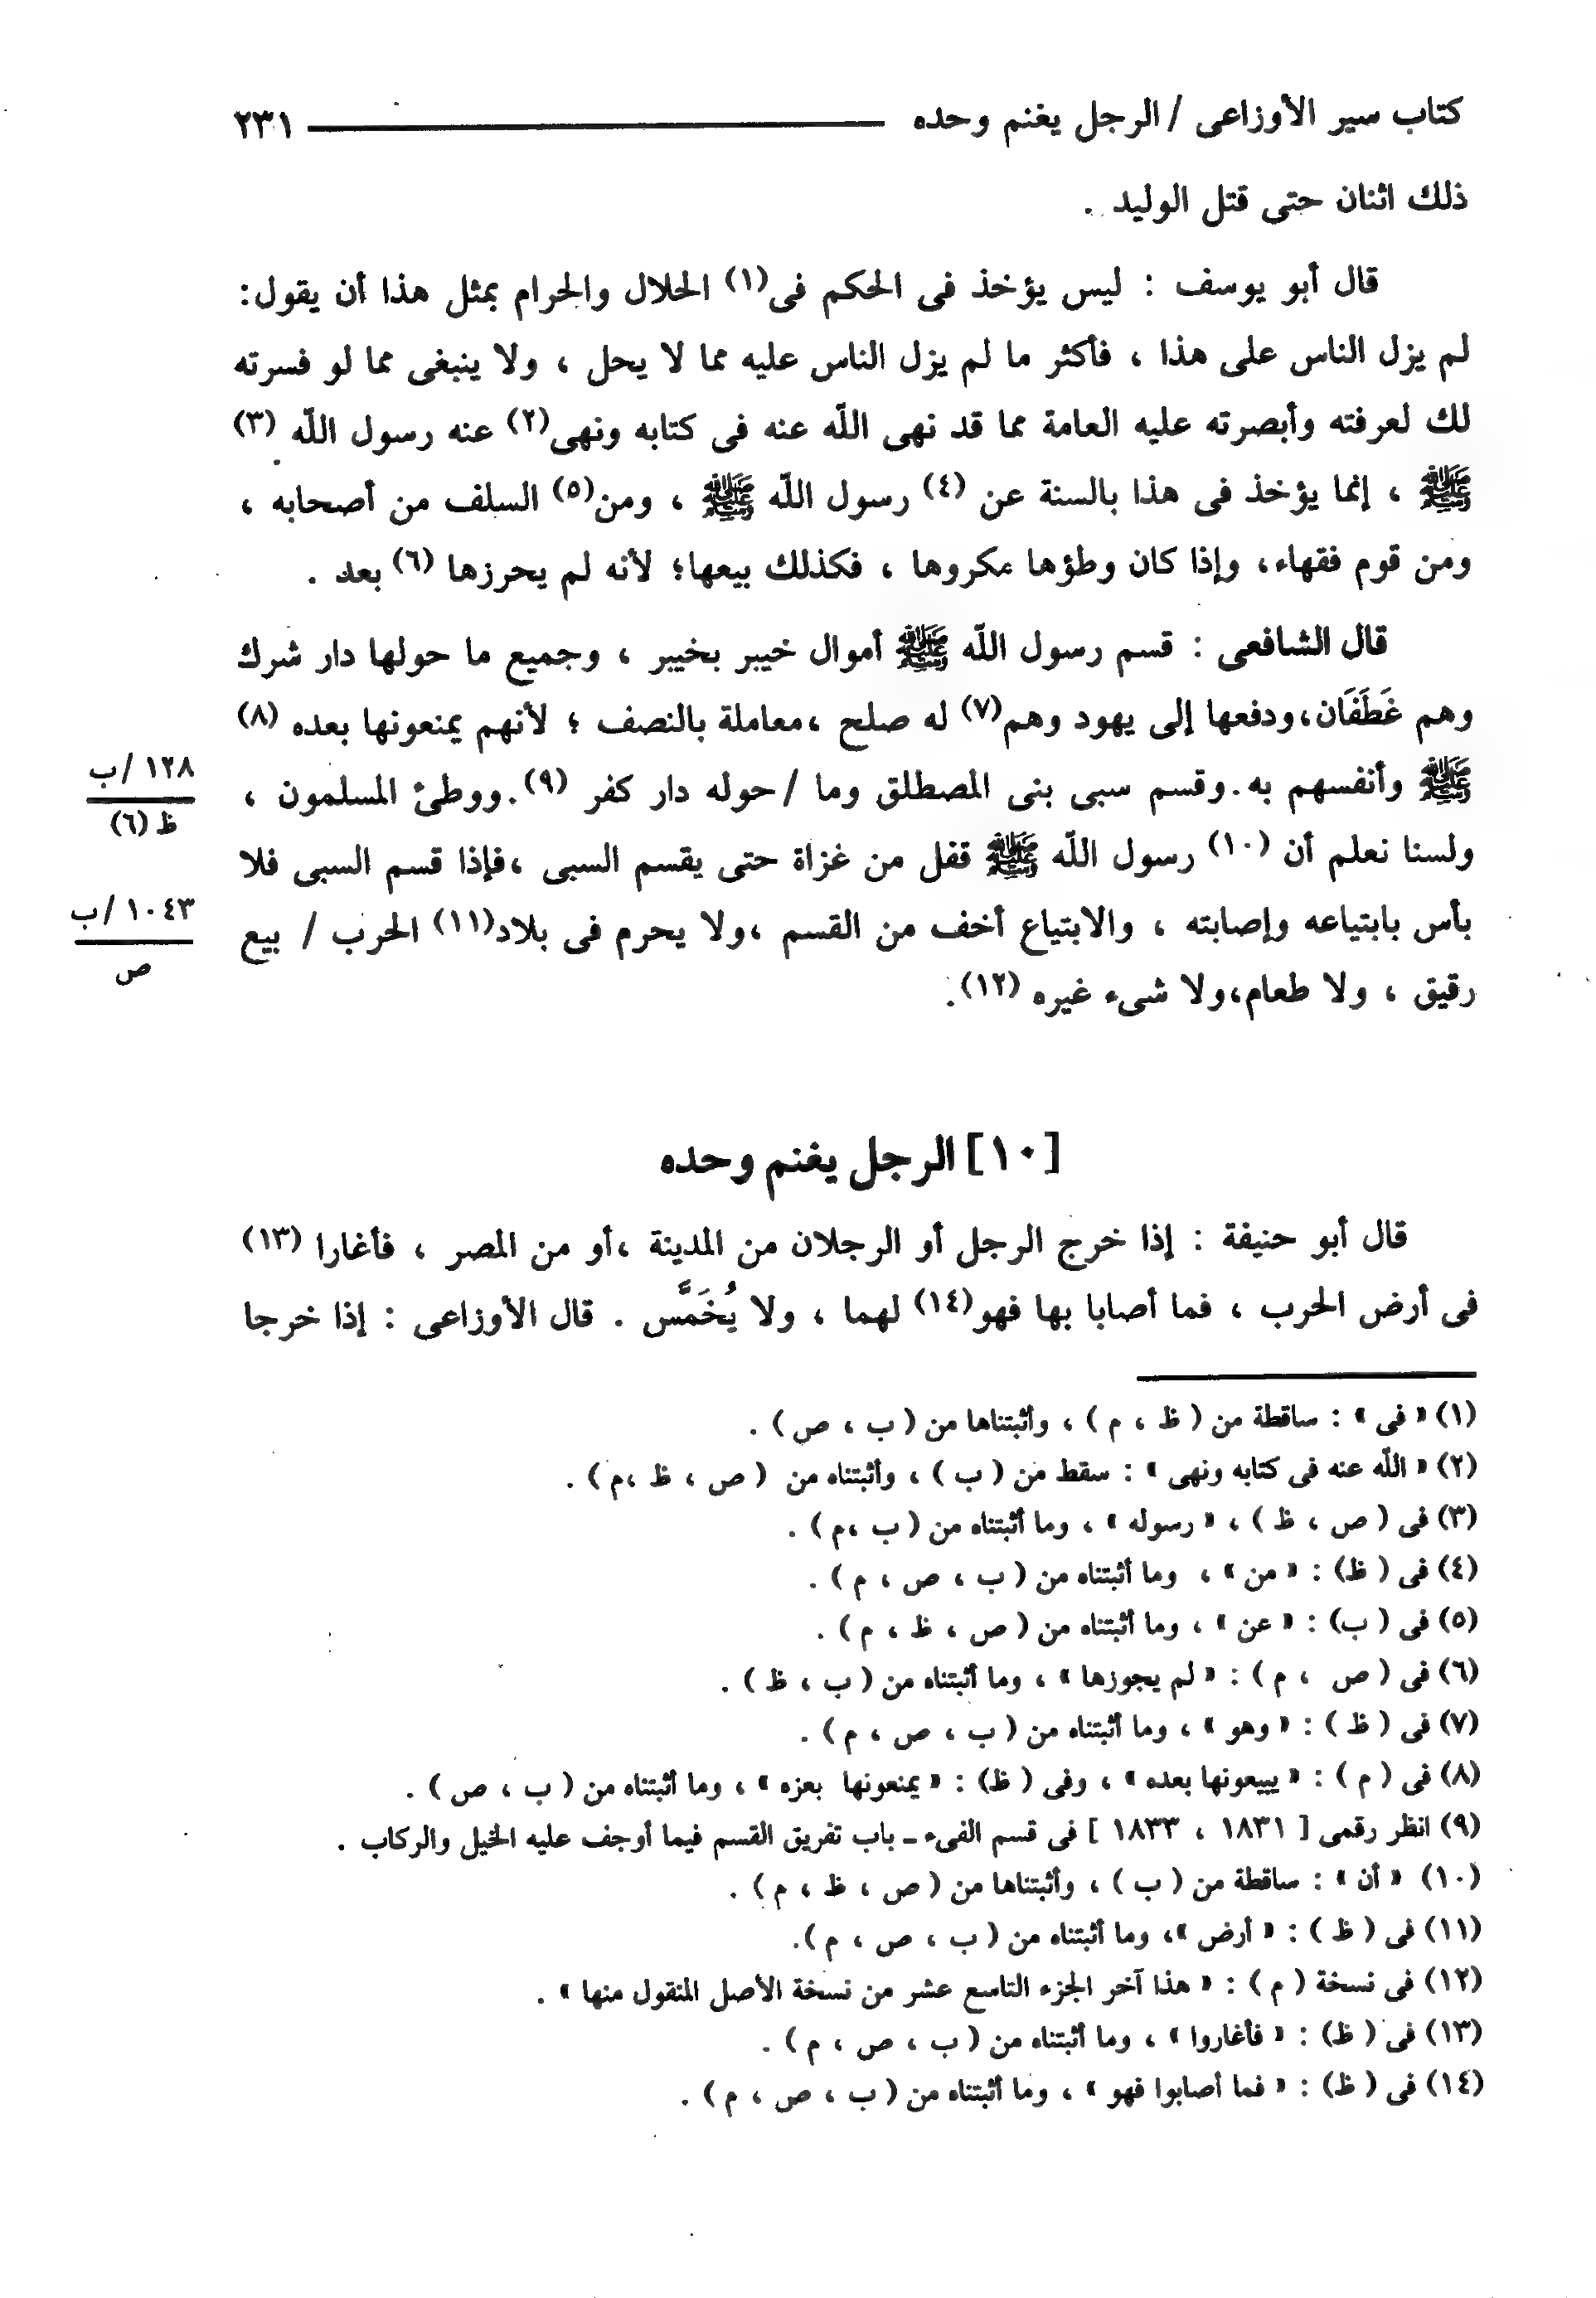 كتاب سير الأوزاعى / الرجل يغنم وحده ٢٣١
ذلك اثنان حتى قتل الوليد .
قال أبو يوسف : ليس يؤخذ فى الحكم فى(١) الحلال والحرام بمثل هذا أن يقول:
لم يزل الناس على هذا ، فأكثر ما لم يزل الناس عليه مما لا يحل ، ولا ينبغى مما لو فسرته
لك لعرفته وأبصرته عليه العامة مما قد نهى اللّه عنه فى كتابه ونهى(٢) عنه رسول اللّه (٣)
ﷺ ، إنما يؤخذ فى هذا بالسنة عن (٤) رسول اللّه ﷺ ، ومن(٥) السلف من أصحابه ،
ومن قوم فقهاء، وإذا كان وطؤها مكروها ، فكذلك بيعها؛ لأنه لم يحرزها (٦) بعد .
قال الشافعى : قسم رسول اللّه ﷺ أموال خيبر بخيبر ، وجميع ما حولها دار شرك
وهم غَطَفَان،ودفعها إلى يهود وهم(٧) له صلح ،معاملة بالنصف ؛ لأنهم يمنعونها بعده (٨)
ﷺ وأنفسهم به.وقسم سبى بنى المصطلق وما /حوله دار كفر (٩).ووطئ المسلمون ،
١٢٨ /ب
ظ (٦)
ولسنا نعلم أن (١٠) رسول اللّه ﷺ قفل من غزاة حتى يقسم السبى ،فإذا قسم السبى فلا
بأس بابتياعه وإصابته ، والابتياع أخف من القسم ،ولا يحرم فى بلاد(١١) الحرب / بيع
١٠٤٣ /ب
ص
رقيق ، ولا طعام،ولا شىء غيره (١٢).
[١٠] الرجل يغنم وحده
قال أبو حنيفة : إذا خرج الرجل أو الرجلان من المدينة ،أو من المصر ، فأغارا (١٣)
فى أرض الحرب ، فما أصابا بها فهو(١٤) لهما ، ولا يُخَمَّس . قال الأوزاعى : إذا خرجا
(١) « فى » : ساقطة من ( ظ ، م ) ، وأثبتناها من ( ب ، ص ) .
(٢) « اللّه عنه فى كتابه ونهى » : سقط من ( ب ) ، وأثبتناه من ( ص ، ظ ،م ) .
(٣) فى ( ص ، ظ ) ، « رسوله » ، وما أثبتناه من ( ب ،م ) .
(٤) فى ( ظ) : « من » ، وما أثبتناه من ( ب ، ص ، م ) .
(٥) فى ( ب) : « عن » ، وما أثبتناه من ( ص ، ظ ، م ) .
(٦) فى ( ص ، م ) : « لم يجوزها » ، وما أثبتناه من ( ب ، ظ ) .
(٧) فى ( ظ ) : « وهو » ، وما أثبتناه من ( ب ، ص ، م ) .
(٨) فى ( م ) : « يبيعونها بعده » ، وفى ( ظ) : « يمنعونها بعزه » ، وما أثبتناه من ( ب ، ص ) .
(٩) انظر رقمى [ ١٨٣١ ، ١٨٣٣ ] فى قسم الفىء ـ باب تفريق القسم فيما أوجف عليه الخيل والركاب .
(١٠) « أن » : ساقطة من ( ب ) ، وأثبتناها من ( ص ، ظ ، م ) .
(١١) فى ( ظ ) : « أرض »، وما أثبتناه من ( ب ، ص ، م ).
(١٢) فى نسخة ( م ) : « هذا آخر الجزء التاسع عشر من نسخة الأصل المنقول منها » .
(١٣) فى ( ظ) : « فأغاروا » ، وما أثبتناه من ( ب ، ص ، م ) .
(١٤) فى ( ظ) : « فما أصابوا فهو » ، وما أثبتناه من ( ب ، ص ، م ) .